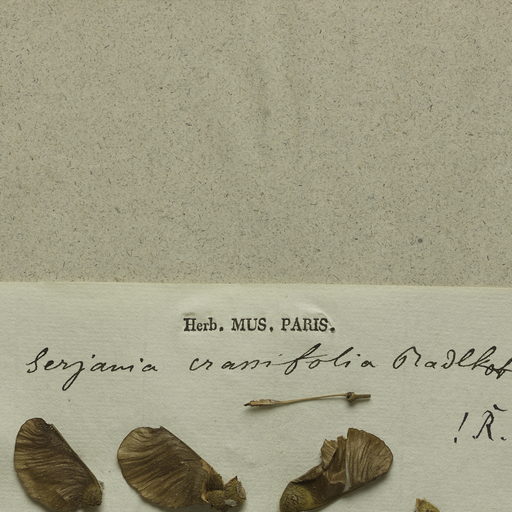 Herb. MUS. PARIS.
Serjania crassifolia Radlkof
! R.